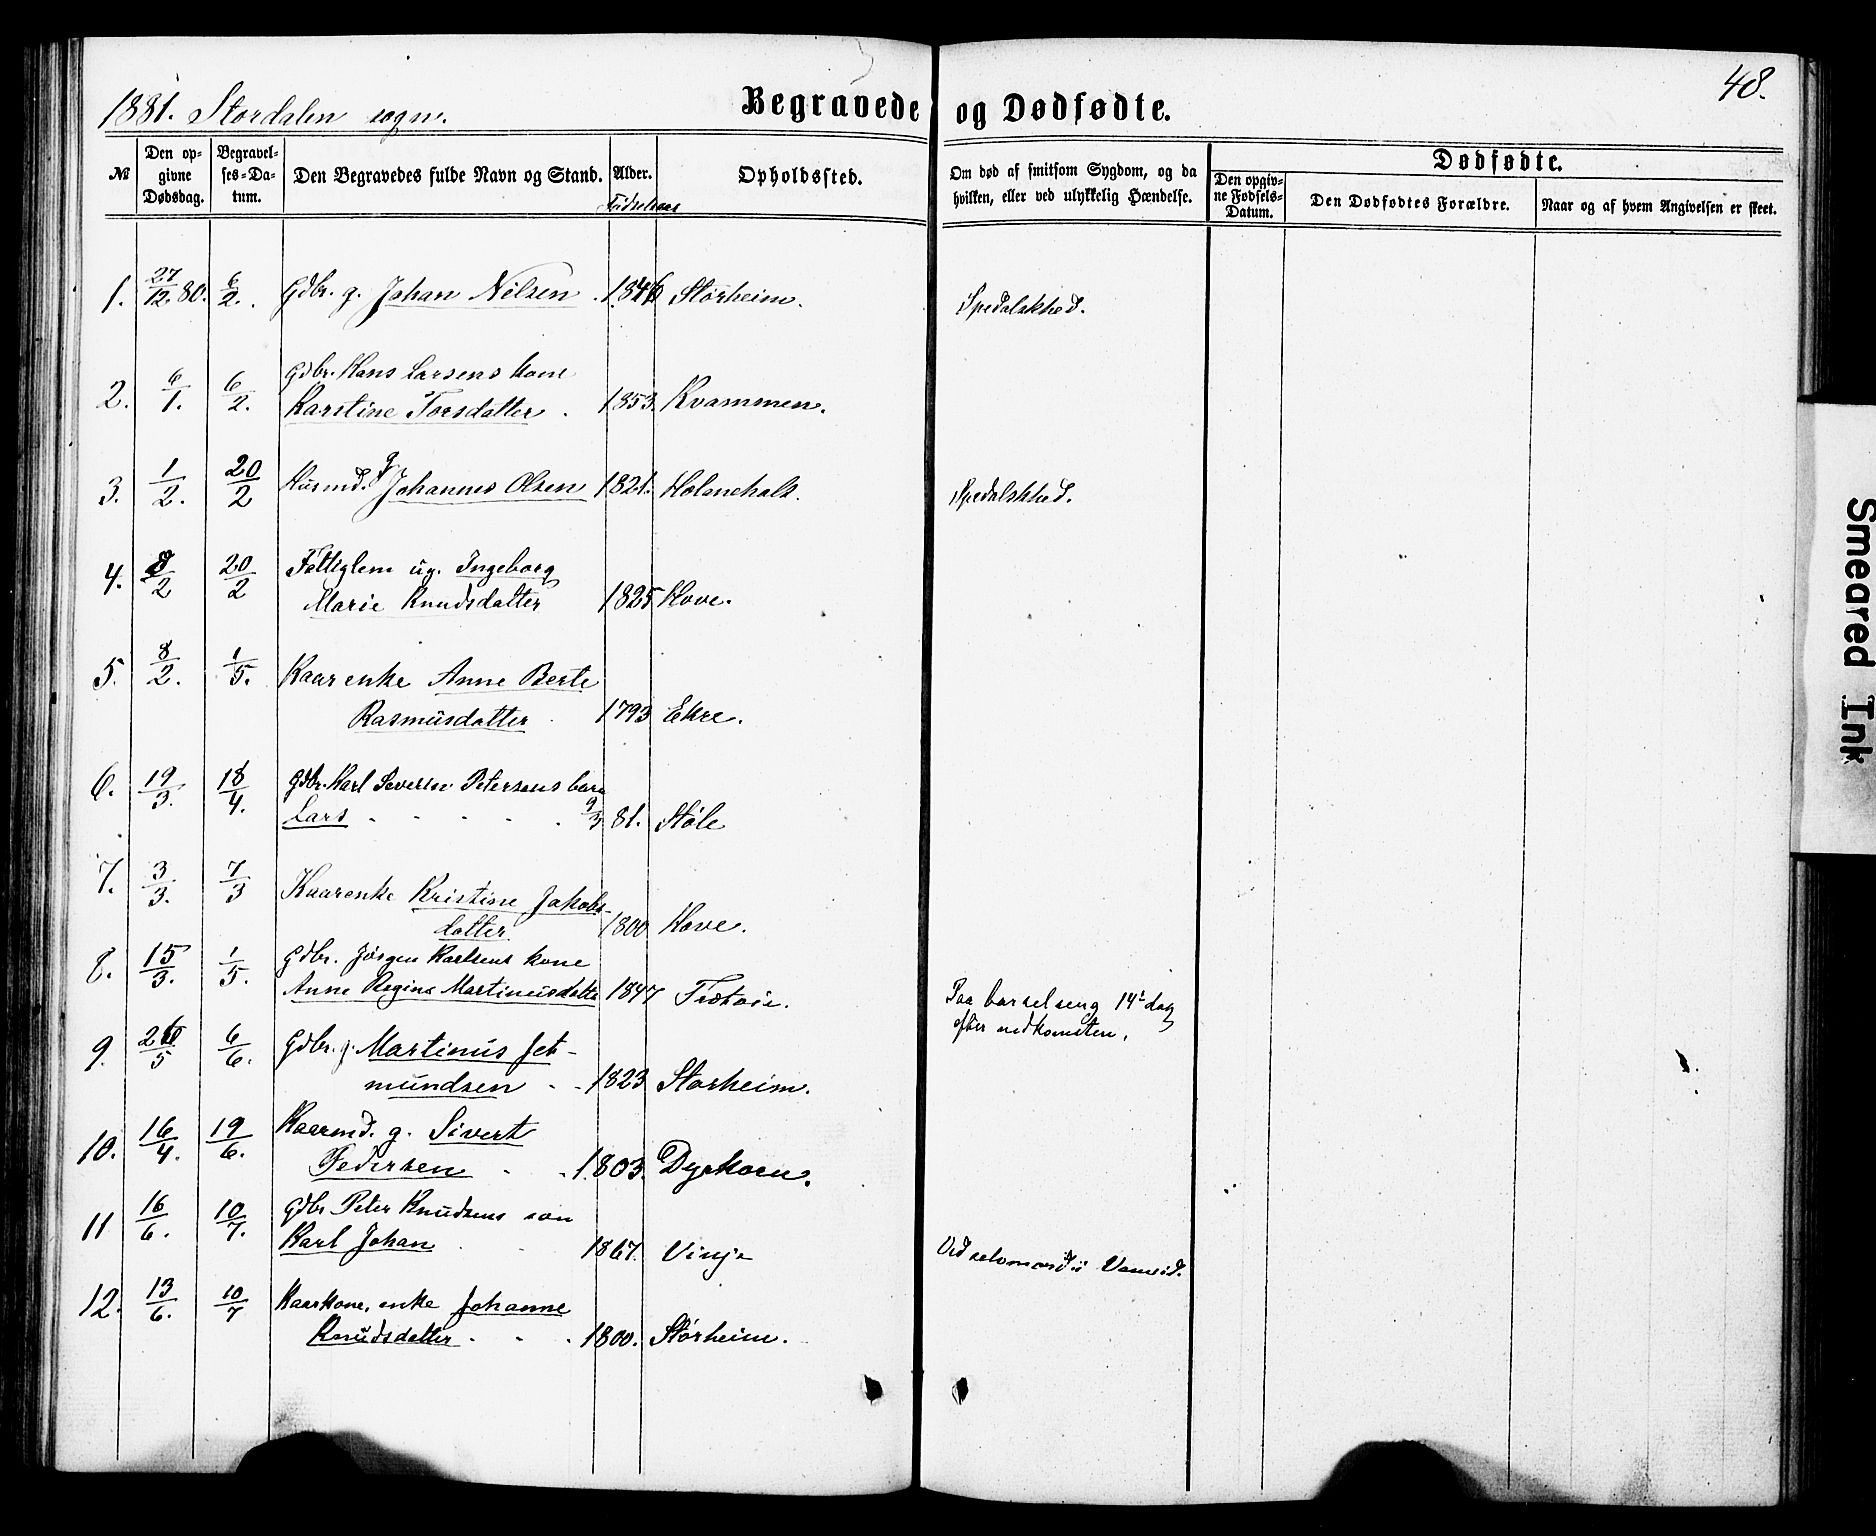 1881. Stordalen sogn.
Begravede og Dødfødte.
48.
№
Den opgivne Dødsdag.
Begravelses-Datum.
Den Begravedes fulde Navn og Stand.
Alder.
Fødselsaar
Opholdssted.
Om død af smitsom Sygdom, og da hvilken, eller ved ulykkelig Hændelse.
Dødfødte.
Den opgivne Fødsels-Datum.
Den Dødfødtes Forældre.
Naar og af hvem Angivelsen er skeet.
1. 27/12 80. 6/2. Gdbr. g. Johan Nilsen . 1846 Storheim. Spedalskhed.
Gdbr. Hans Larsens kone
2. 6/1. 6/2. Karstine Torsdatter . 1853. Kvammen.
3. 1/2. 20/2 Husmd. g Johannes Olsen 1821. Holenehals. Spedalskhed.
4. 8/2 20/2 Fattiglem ug. Ingeborg
Marie Knudsdatter 1825 Hove.
5. 8/2. 1/5. Kaarenke Anne Berte
Rasmusdatter . 1793 Ekre.
6. 19/3. 18/4. Gdbr. Karl Severin Petersens barn
Lars - - - - . 9/3 81. Støle
7. 3/3. 7/3 Kaarenke Kristine Jakobs-
datter 1800 Hove.
8. 15/3. 1/5. Gdbr. Jørgen Karlsens kone
Anne Regine Martinusdatter 1847 Trætøie. Paa barselseng 14de dag
efter nedkomsten.
9. 26/5 6/6. Gdbr. g. Martinus Jet-
mundsen - - 1823 Storheim.
10. 16/4. 19/6. Kaarmd. g. Sivert
Pedersen - - 1803. Dyrkorn.
11 16/6. 10/7. Gdbr Peter Knudsens søn
Karl Johan . . 1867. Vinje Ved selvmord i Vanvid.
12. 13/6. 10/7 Kaarkone, enke Johanne
Knudsdatter - - . 1800. Storheim.
Smeared Ink